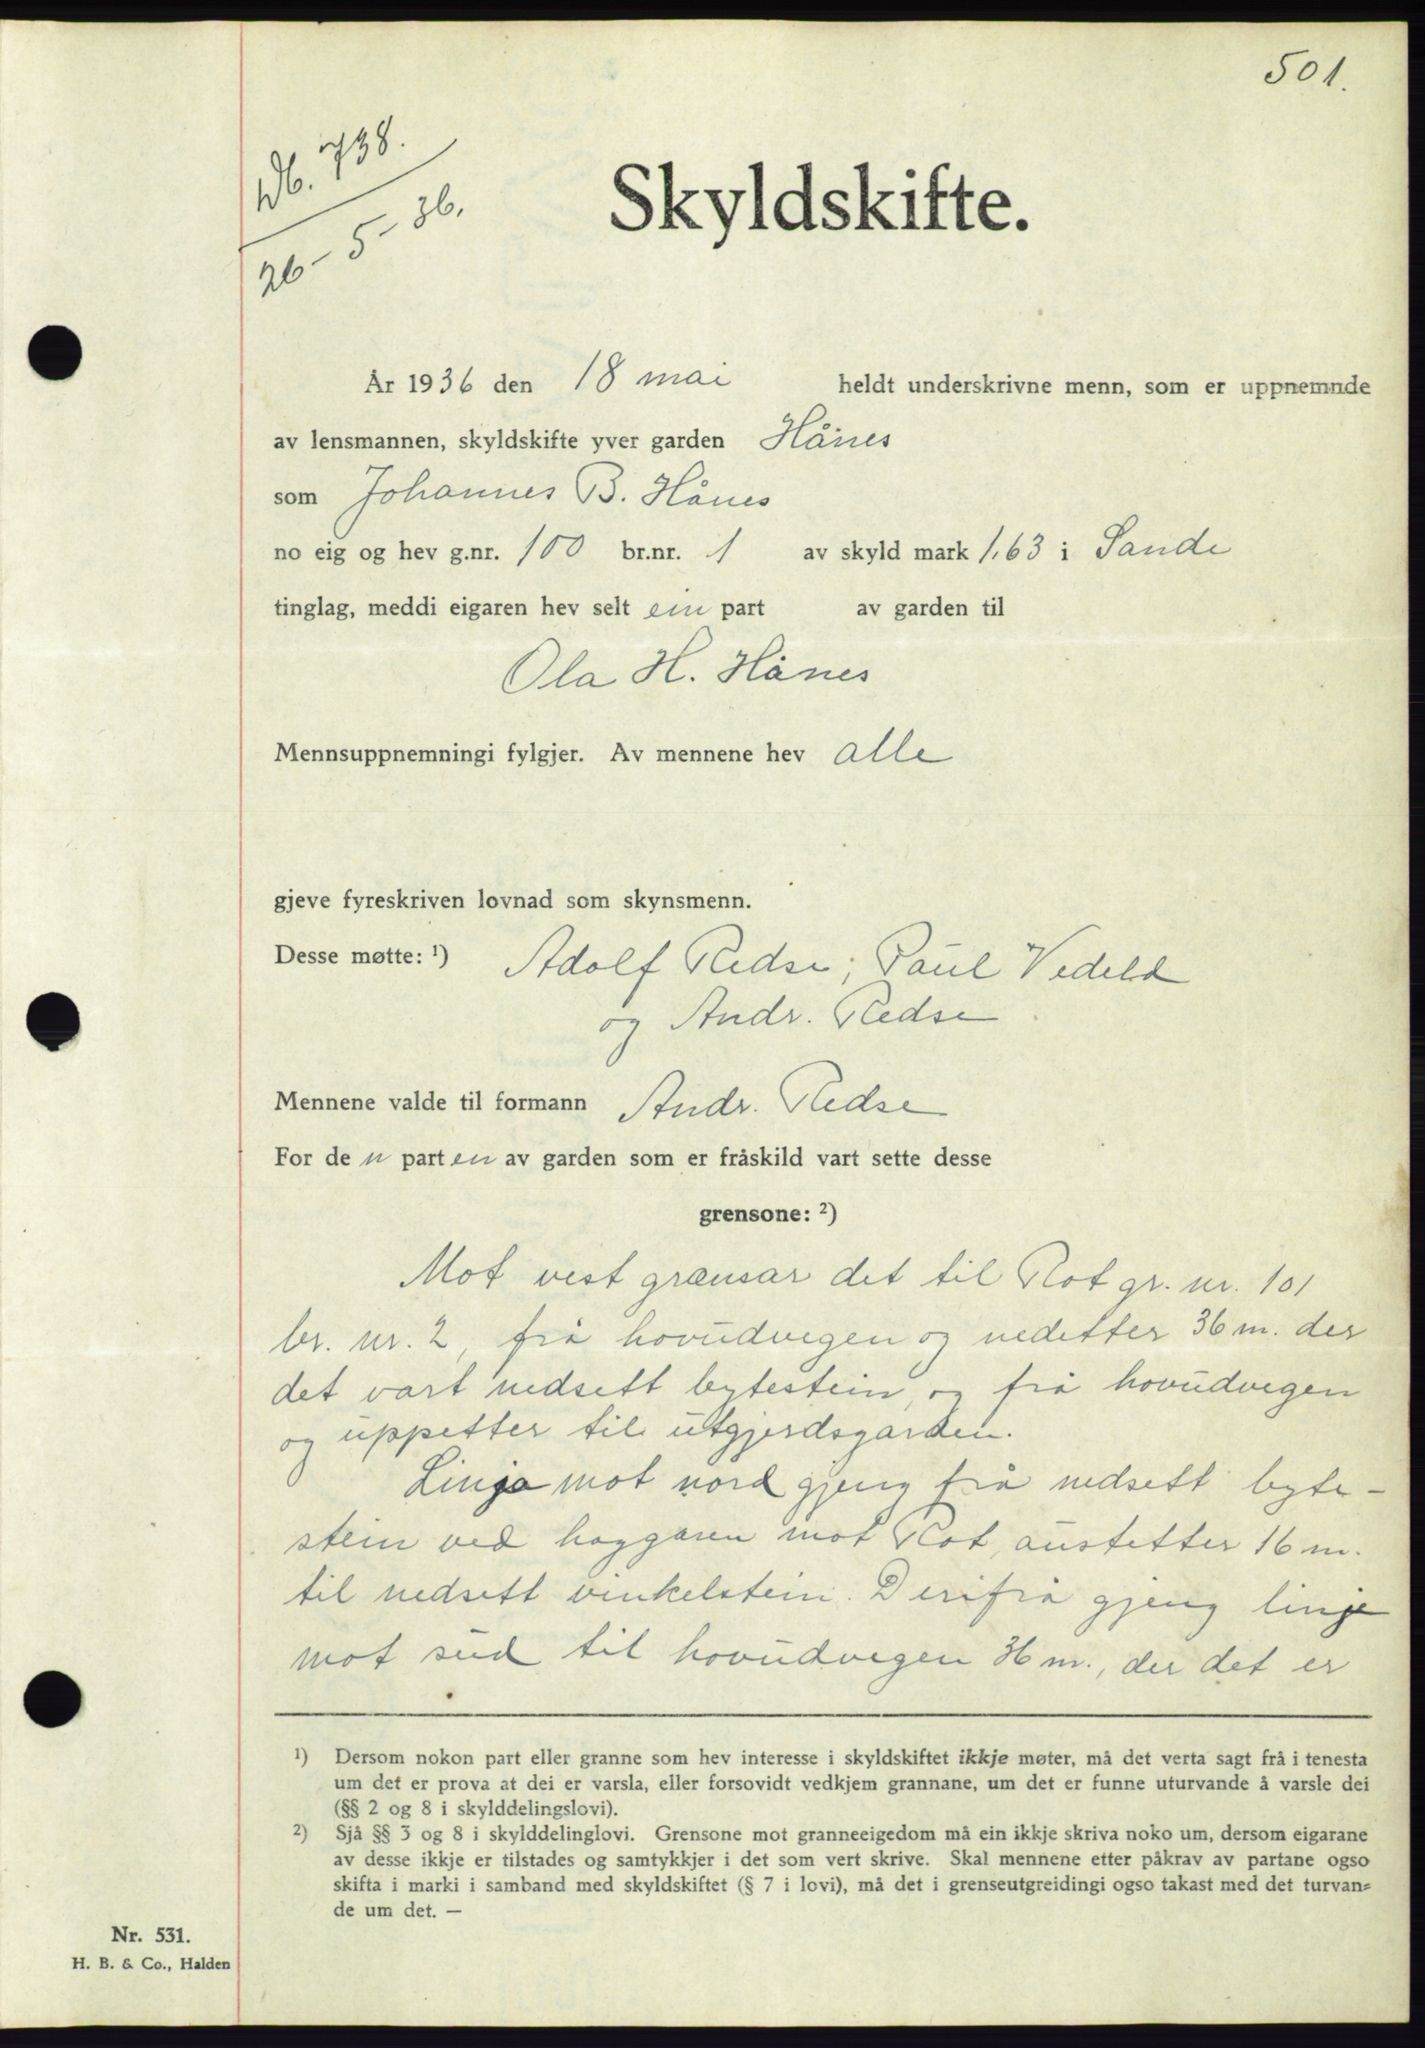 501.
Db. 738.
26-5-36.
Skyldskifte.
År 1936 den 18 mai heldt underskrivne menn, som er uppnemnde
av lensmannen, skyldskifte yver garden Hånes
som Johannes B. Hånes
no eig og hev g.nr. 100 br.nr. 1 av skyld mark 1,63 i Sande
tinglag, meddi eigaren hev selt ein part av garden til
Ola H. Hånes
Mennsuppnemningi fylgjer. Av mennene hev alle
gjeve fyreskriven lovnad som skynsmenn.
Desse møtte: ¹) Adolf Redse; Paul Vedeld
og Andr. Redse
Mennene valde til formann Andr. Redse
For de n part en av garden som er fråskild vart sette desse
grensone: ²)
Mot vest grænsar det til Rot gr. nr. 101
br. nr. 2, frå hovudvegen og nedetter 36 m. der
det vart nedsett bytestein, og frå hovudvegen
og uppetter til utgjerdsgarden.
Linja mot nord gjeng frå nedsett byte-
stein ved haggaren mot Rot, austetter 16 m.
til nedsett vinkelstein. Derifrå gjeng linje
mot sud til hovudvegen 36 m., der det er
¹) Dersom nokon part eller granne som hev interesse i skyldskiftet ikkje møter, må det verta sagt frå i tenesta
um det er prova at dei er varsla, eller forsovidt vedkjem grannane, um det er funne uturvande å varsle dei
(§§ 2 og 8 i skylddelingslovi).
²) Sjå §§ 3 og 8 i skylddelinglovi. Grensone mot granneeigedom må ein ikkje skriva noko um, dersom eigarane
av desse ikkje er tilstades og samtykkjer i det som vert skrive. Skal mennene etter påkrav av partane ogso
skifta i marki i samband med skyldskiftet (§ 7 i lovi), må det i grenseutgreidingi ogso takast med det turvan=
de um det. —
Nr. 531.
H. B. & Co., Halden